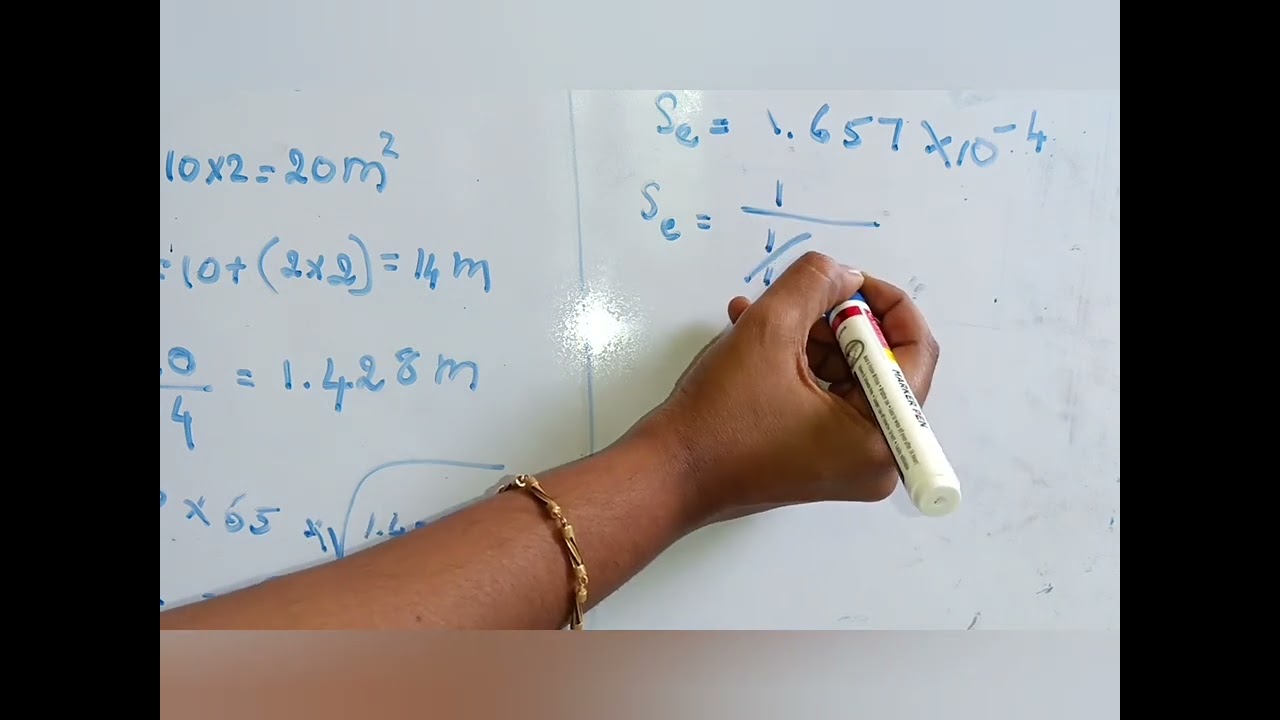 10×2=20m²
=10+(2×2)=14m
0/4 = 1.428m
×65 ×√1.4
Se = 1.657×10⁻⁴
Se = 1/(1/
MARKER PEN